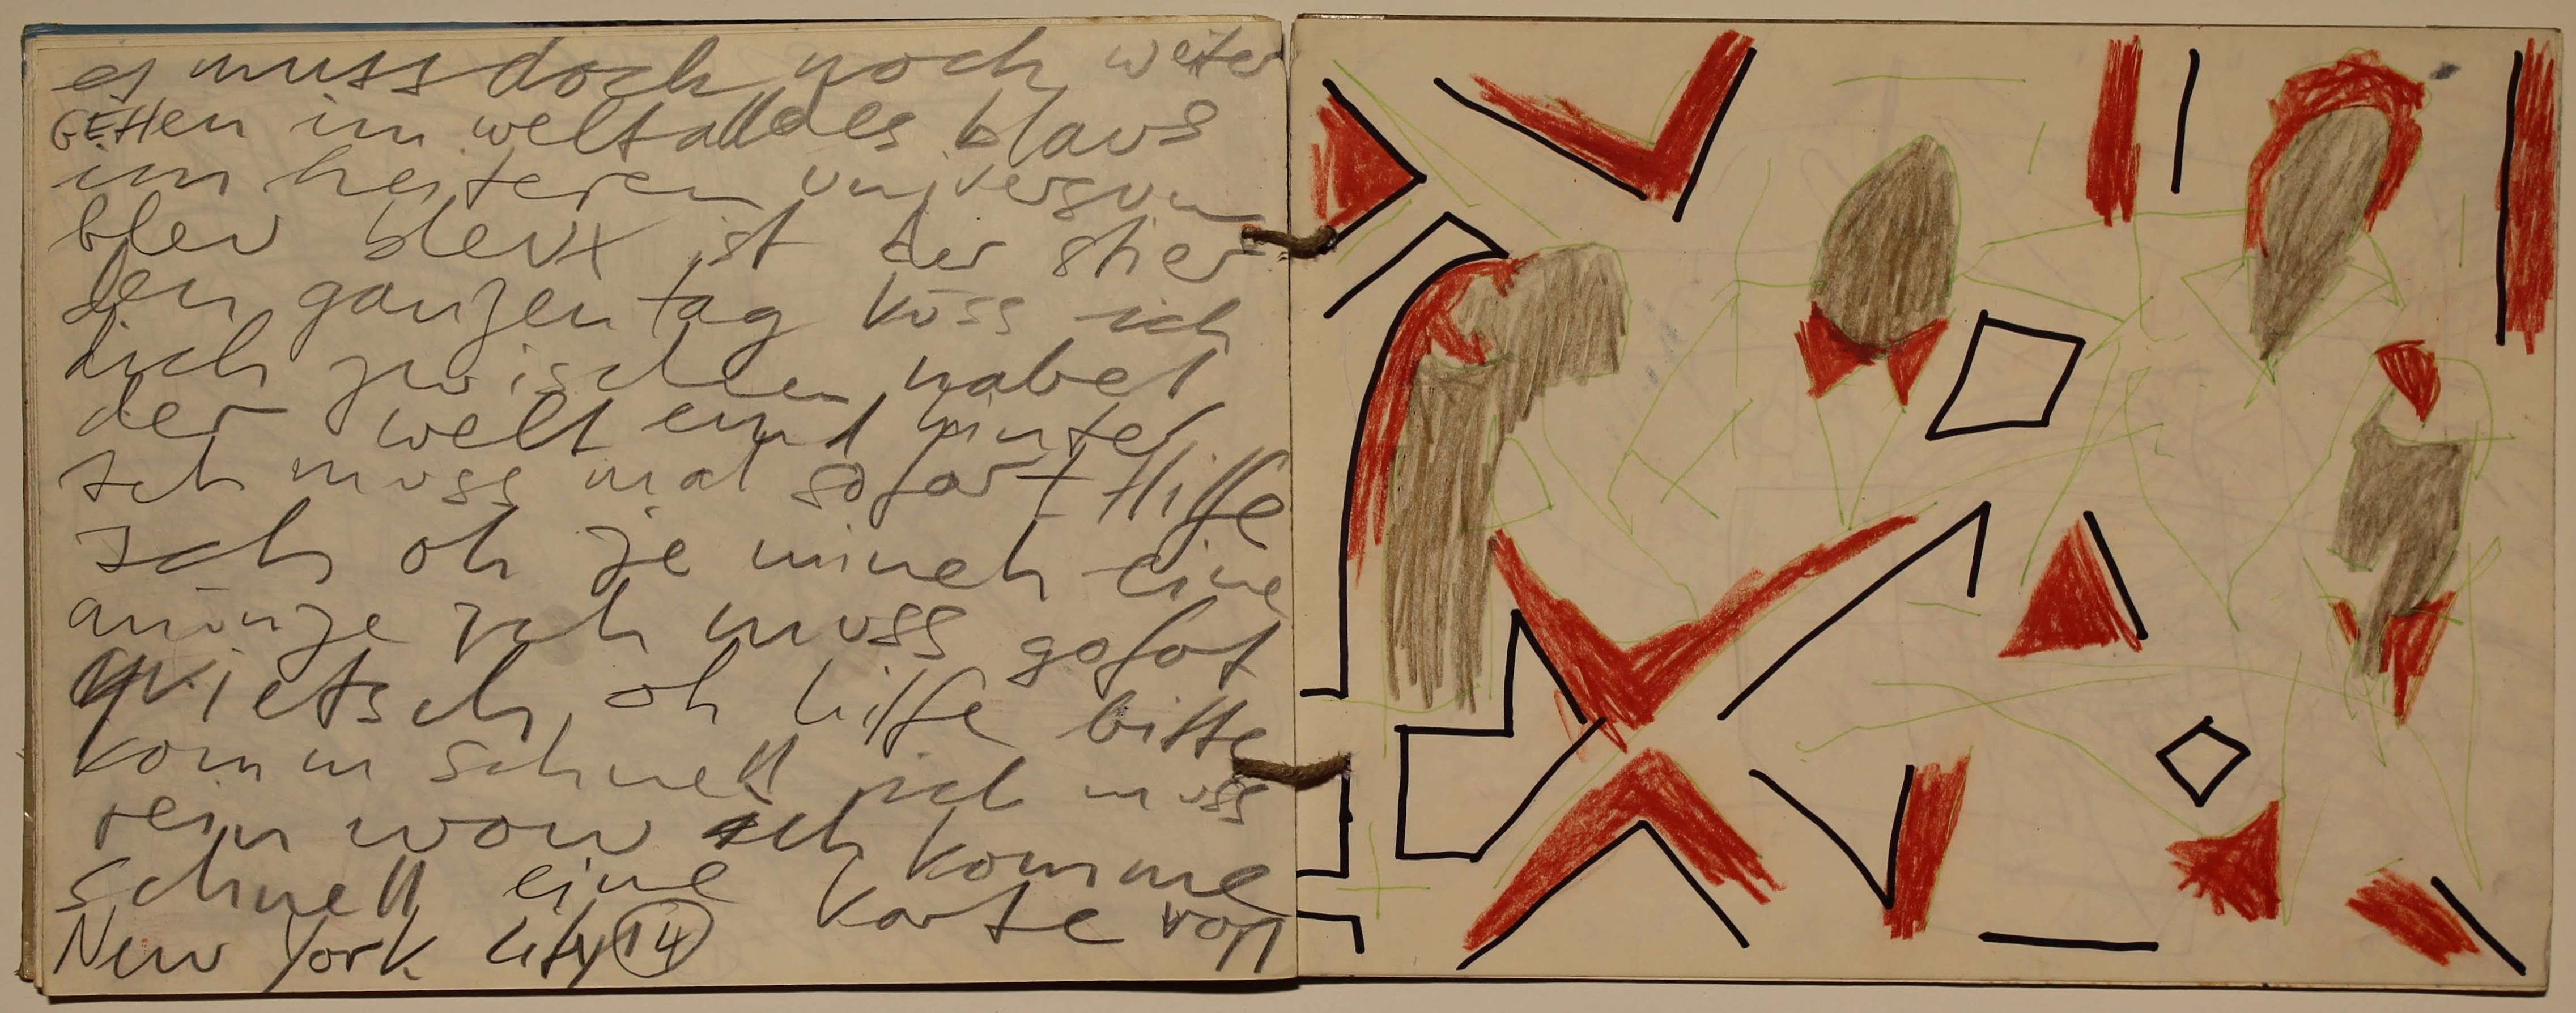 es muss doch noch weiter
GEHen im weltall des blaus
im heiteren universum
bleu bleux ist der stier
den ganzen tag küss ich
dich zwischen nabel
der welt und hinter
ich muss mal sofort Hilfe
ich oh je mineh eine
münze ich muss sofot
quietsch oh hilfe bitte
komm schnell ich muss
rein wow ich komme
schnell eine karte von
New York City 14